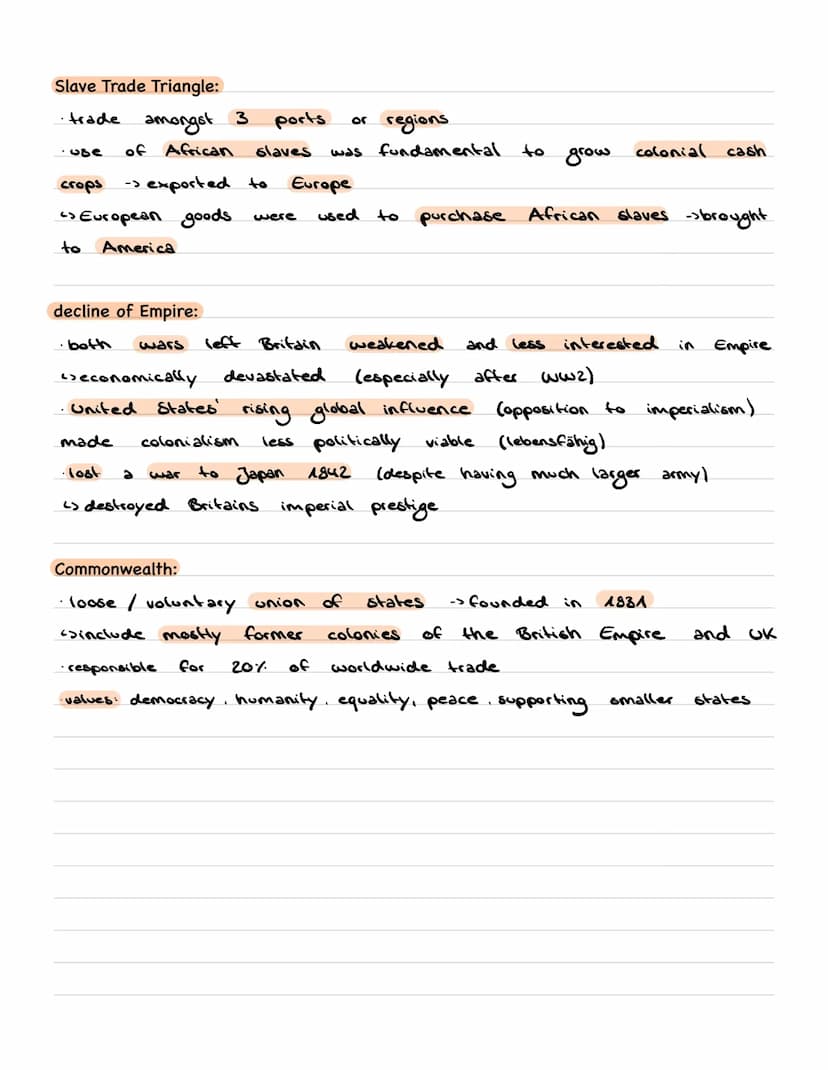 Slave Trade Triangle:
· trade amongst 3 ports or regions
· use of African slaves was fundamental to grow colonial cash
crops -> exported to Europe
↳ European goods were used to purchase African slaves -> brought
to America
decline of Empire:
· both wars left Britain weakened and less interested in Empire
↳ economically devastated (especially after WW2)
· United States' rising global influence (opposition to imperialism)
made colonialism less politically viable (lebensfähig)
· lost a war to Japan 1842 (despite having much larger army)
↳ destroyed Britains imperial prestige
Commonwealth:
· loose / voluntary union of states -> founded in 1931
↳ include mostly former colonies of the British Empire and UK
· responsible for 20% of worldwide trade
· values: democracy, humanity, equality, peace, supporting smaller states